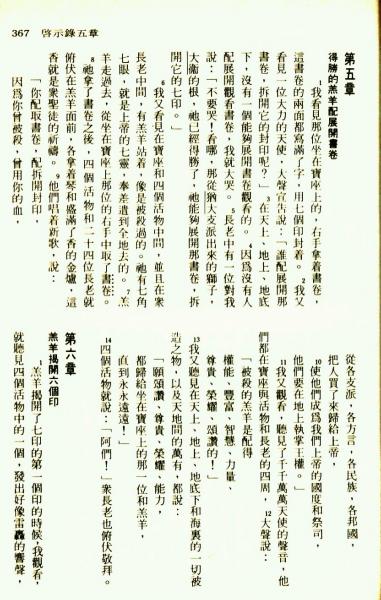 367　啓示錄五章
第五章
得勝的羔羊配展開書卷
1我看見那位坐在寶座上的，右手拿着書卷，
這書卷的兩面都寫滿了字，用七個印封着。2我又
看見一位大力的天使，大聲宣告說：「誰配展開那
書卷，拆開它的封印呢？」3在天上、地上、地底
下，沒有一個能夠展開書卷觀看的。4因爲沒有人
配展開觀看書卷，我就大哭。5長老中有一位對我
說：「不要哭！看哪，那從猶大支派出來的獅子，
大衞的根，祂已經得勝了，祂能夠展開那書卷，拆
開它的七印。」
6我又看見在寶座和四個活物中間，並且在衆
長老中間，有羔羊站着，像是被殺過的。祂有七角
七眼，就是上帝的七靈，奉差遣到全地去的。7羔
羊走過去，從坐在寶座上那位的右手中取了書卷。
8祂拿了書卷之後，四個活物和二十四位長老就
俯伏在羔羊面前，各拿着琴和盛滿了香的金爐，這
香就是衆聖徒的祈禱。9他們唱着新歌，說：
「你配取書卷，配拆開封印，
因爲你曾被殺，曾用你的血，
從各支派，各方言，各民族，各邦國，
把人買了來歸給上帝，
10使他們成爲我們上帝的國度和祭司，
他們要在地上執掌王權。」
11我又觀看，聽見了千千萬萬天使的聲音，他
們都在寶座與活物和長老的四周，12大聲說：
「被殺的羔羊是配得
權能、豐富、智慧、力量、
尊貴、榮耀、頌讚的！」
13我又聽見在天上、地上、地底下和海裏的一切被
造之物，以及天地間的萬有，都說：
「願頌讚、尊貴、榮耀、能力，
都歸給坐在寶座上的那一位和羔羊，
直到永永遠遠！」
14四個活物就說：「阿們！」衆長老也俯伏敬拜。
第六章
羔羊揭開六個印
1羔羊揭開了七印的第一個印的時候，我觀看，
就聽見四個活物中的一個，發出好像雷轟的響聲，